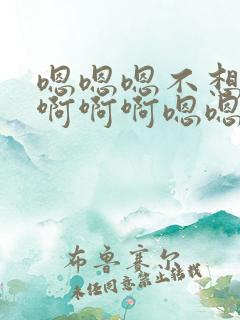 嗯嗯嗯不想
啊啊啊嗯嗯
布鲁赛尔
未经同意禁止转载